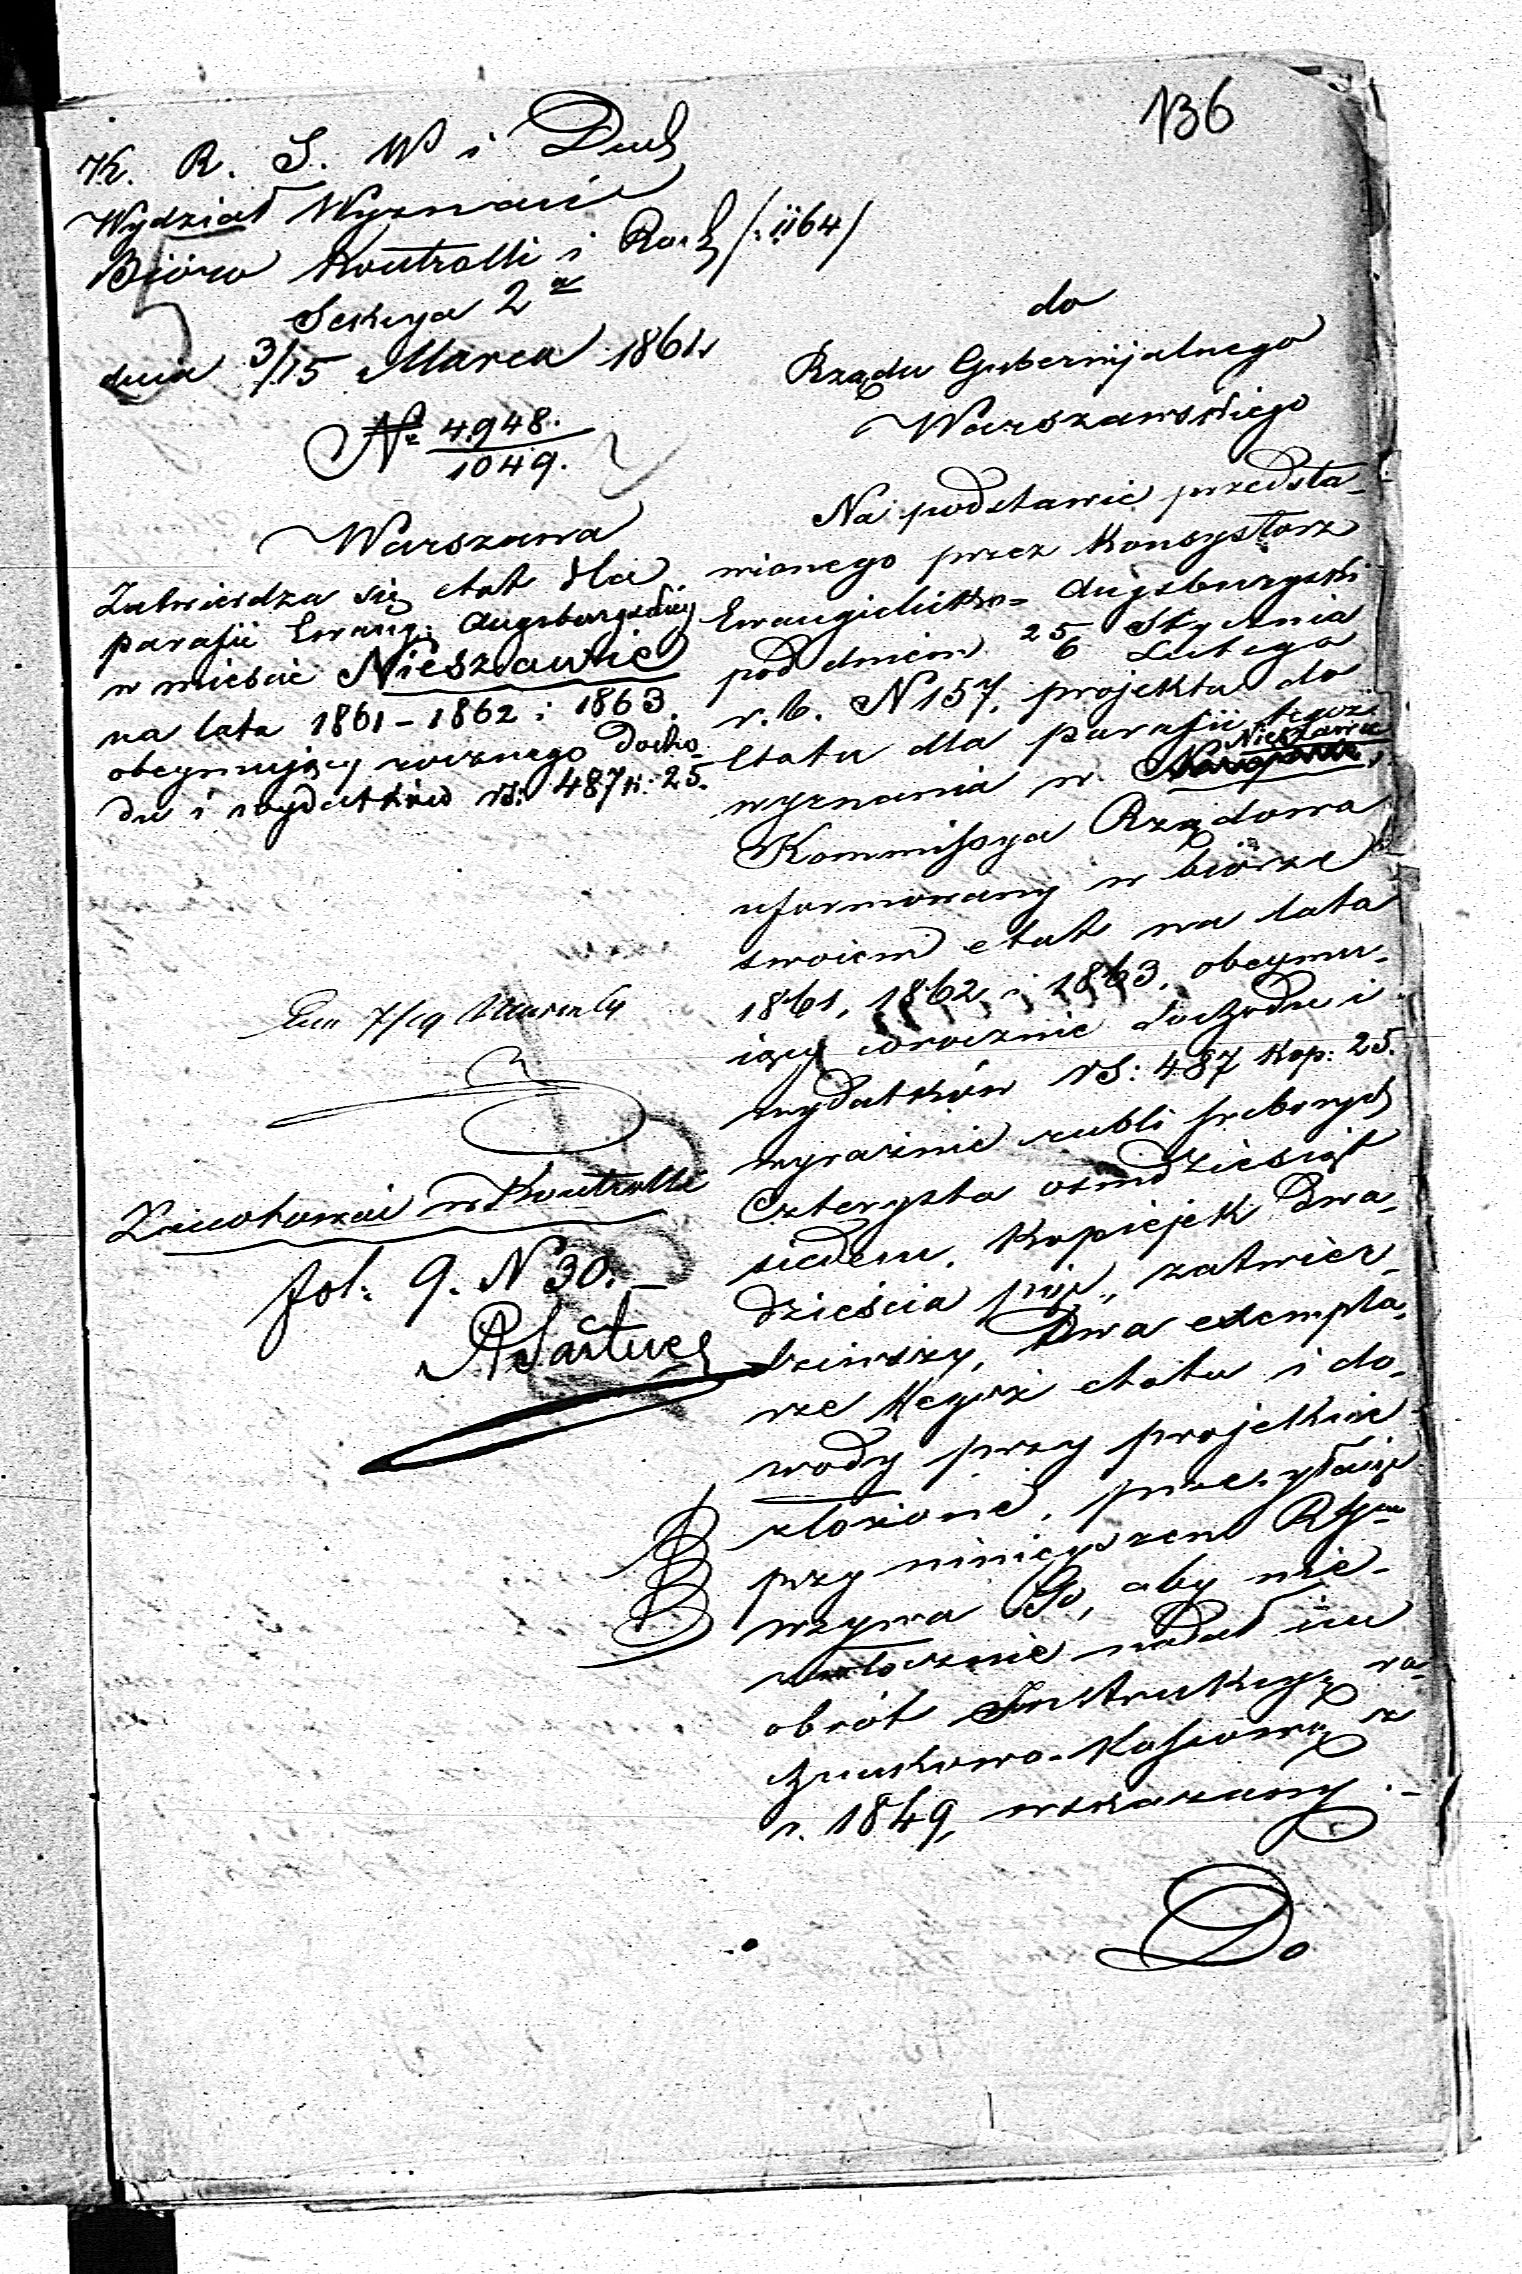 136
K. R. S. W i Duch
Wydział Wyznań
Bióro Kontrolli i Rach /: 1164/
Sekcya 2a
dnia 3/15 Marca 1861
No 4948.
1049.
Warszawa
Zatwierdza się etat dla
parafii Ewang: Augsburgskiéj
w mieście Nieszawie
na lata 1861 – 1862 i 1863.
obeymujący rocznego docho-
du i wydatków rs: 487 k: 25.
7/19 Marca
Zanotować w Kontrolli
fol: 9. N 30. –
do
Rządu Gubernijalnego
Warszawskiego
Na podstawie przedsta-
wionego przez Konsystorz
Ewangielicko-Augsburgski
pod dniem 25 Stycznia
6 Lutego
r. b. N 157, projektu do
Etatu dla parafii tegoż
wyznania w Nieszawie,
Kommissya Rządowa
uformowany w biórze
swoiem etat na lata
1861, 1862 i 1863, obeymu-
iący corocznie dochodu i
wydatków rs: 487 kop: 25.
wyraźnie rubli srebrnych
Czterysta ośmdziesiąt
siedem, kopiejek dwa-
dzieścia pięć, zatwier-
dziwszy, dwa exempla-
rze tegoż etatu i do-
wody przy projekcie
złożone, przesyłając
przy niniejszem
wzywa Go, aby nie-
zwłocznie nadał im
obrót Instrukcyą ra-
chunkowo-Kassową z
r. 1849, wskazany. –
Do